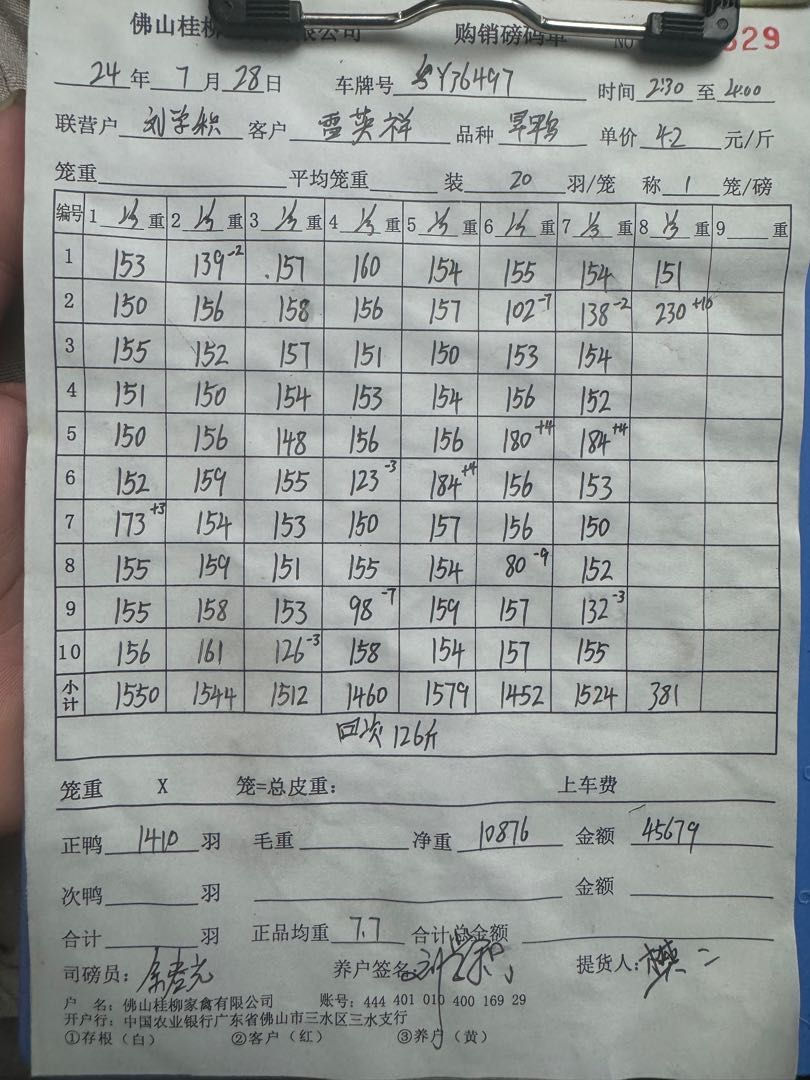 佛山桂柳 有限公司 购销磅码单 NO 329
24年7月28日 车牌号 粤Y36497 时间 2:30 至 4:00
联营户 刘学积 客户 雷英祥 品种 旱鸭 单价 4.2 元/斤
笼重 平均笼重 装 20 羽/笼 称 1 笼/磅
编号 1 重 2 重 3 重 4 重 5 重 6 重 7 重 8 重 9 重
1 153 139-2 157 160 154 155 154 151
2 150 156 158 156 157 102-7 138-2 230+10
3 155 152 157 151 150 153 154
4 151 150 154 153 154 156 152
5 150 156 148 156 156 180+4 184+4
6 152 159 155 123-3 184+4 156 153
7 173+3 154 153 150 157 156 150
8 155 159 151 155 154 80-9 152
9 155 158 153 98-7 159 157 132-3
10 156 161 126-3 158 154 157 155
小计 1550 1544 1512 1460 1579 1452 1524 381
回次 126斤
笼重 X 笼=总皮重: 上车费
正鸭 1410 羽 毛重 净重 10876 金额 45679
次鸭 羽 金额
合计 羽 正品均重 7.7 合计总金额
司磅员: 养户签名: 刘学积 提货人:
户 名: 佛山桂柳家禽有限公司 账号: 444 401 010 400 169 29
开户行: 中国农业银行广东省佛山市三水区三水支行
①存根(白) ②客户(红) ③养户(黄)